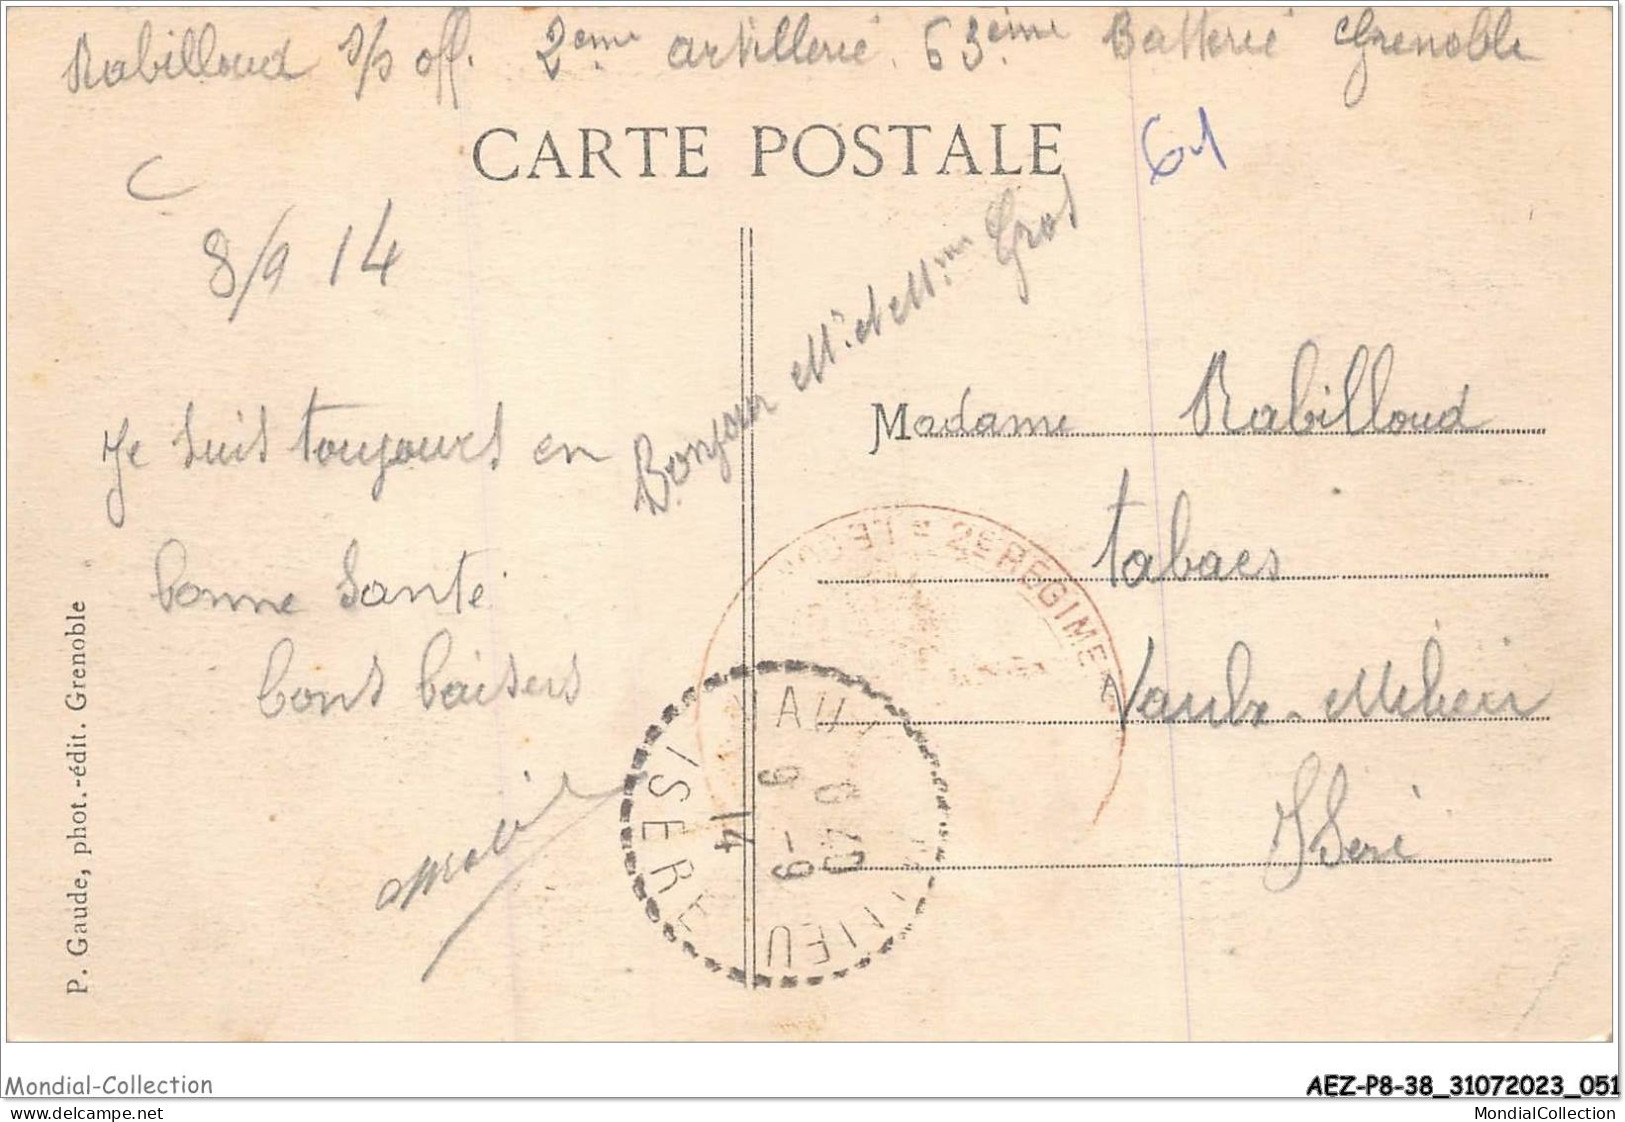 Rabilloud s/s off. 2eme artillerie 63ème Batterie Grenoble
CARTE POSTALE
61
C
8/9 14
Bonjour Mr et Mme Gros
Je suis toujours en
bonne santé
bons baisers
Madame Rabilloud
tabacs
Vaulx-Milieu
Isère
2e REGIMEN
VAULX MILIEU
ISERE
9-9
14
6 40
P. Gaude, phot.-édit. Grenoble
Mondial-Collection
AEZ-P8-38_31072023_051
MondialCollection.net
MondialCollection